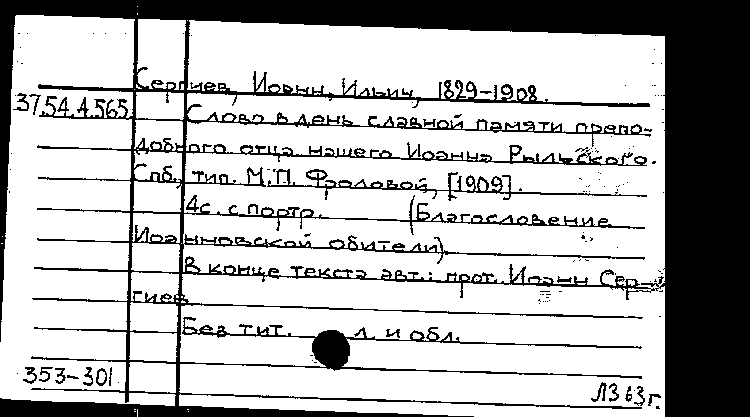 Сергиев, Иоанн, Ильич, 1829-1908.
37.54.4.565. Слово в день славной памяти препо-
добного отца нашего Иоанна Рыльского.
Спб., тип. М.П. Фроловой, [1909].
4с. с портр. (Благословение
Иоанновской обители).
В конце текста авт.: прот. Иоанн Сер-
гиев
Без тит. л. и обл.
353-301 ЛЗ 63г.